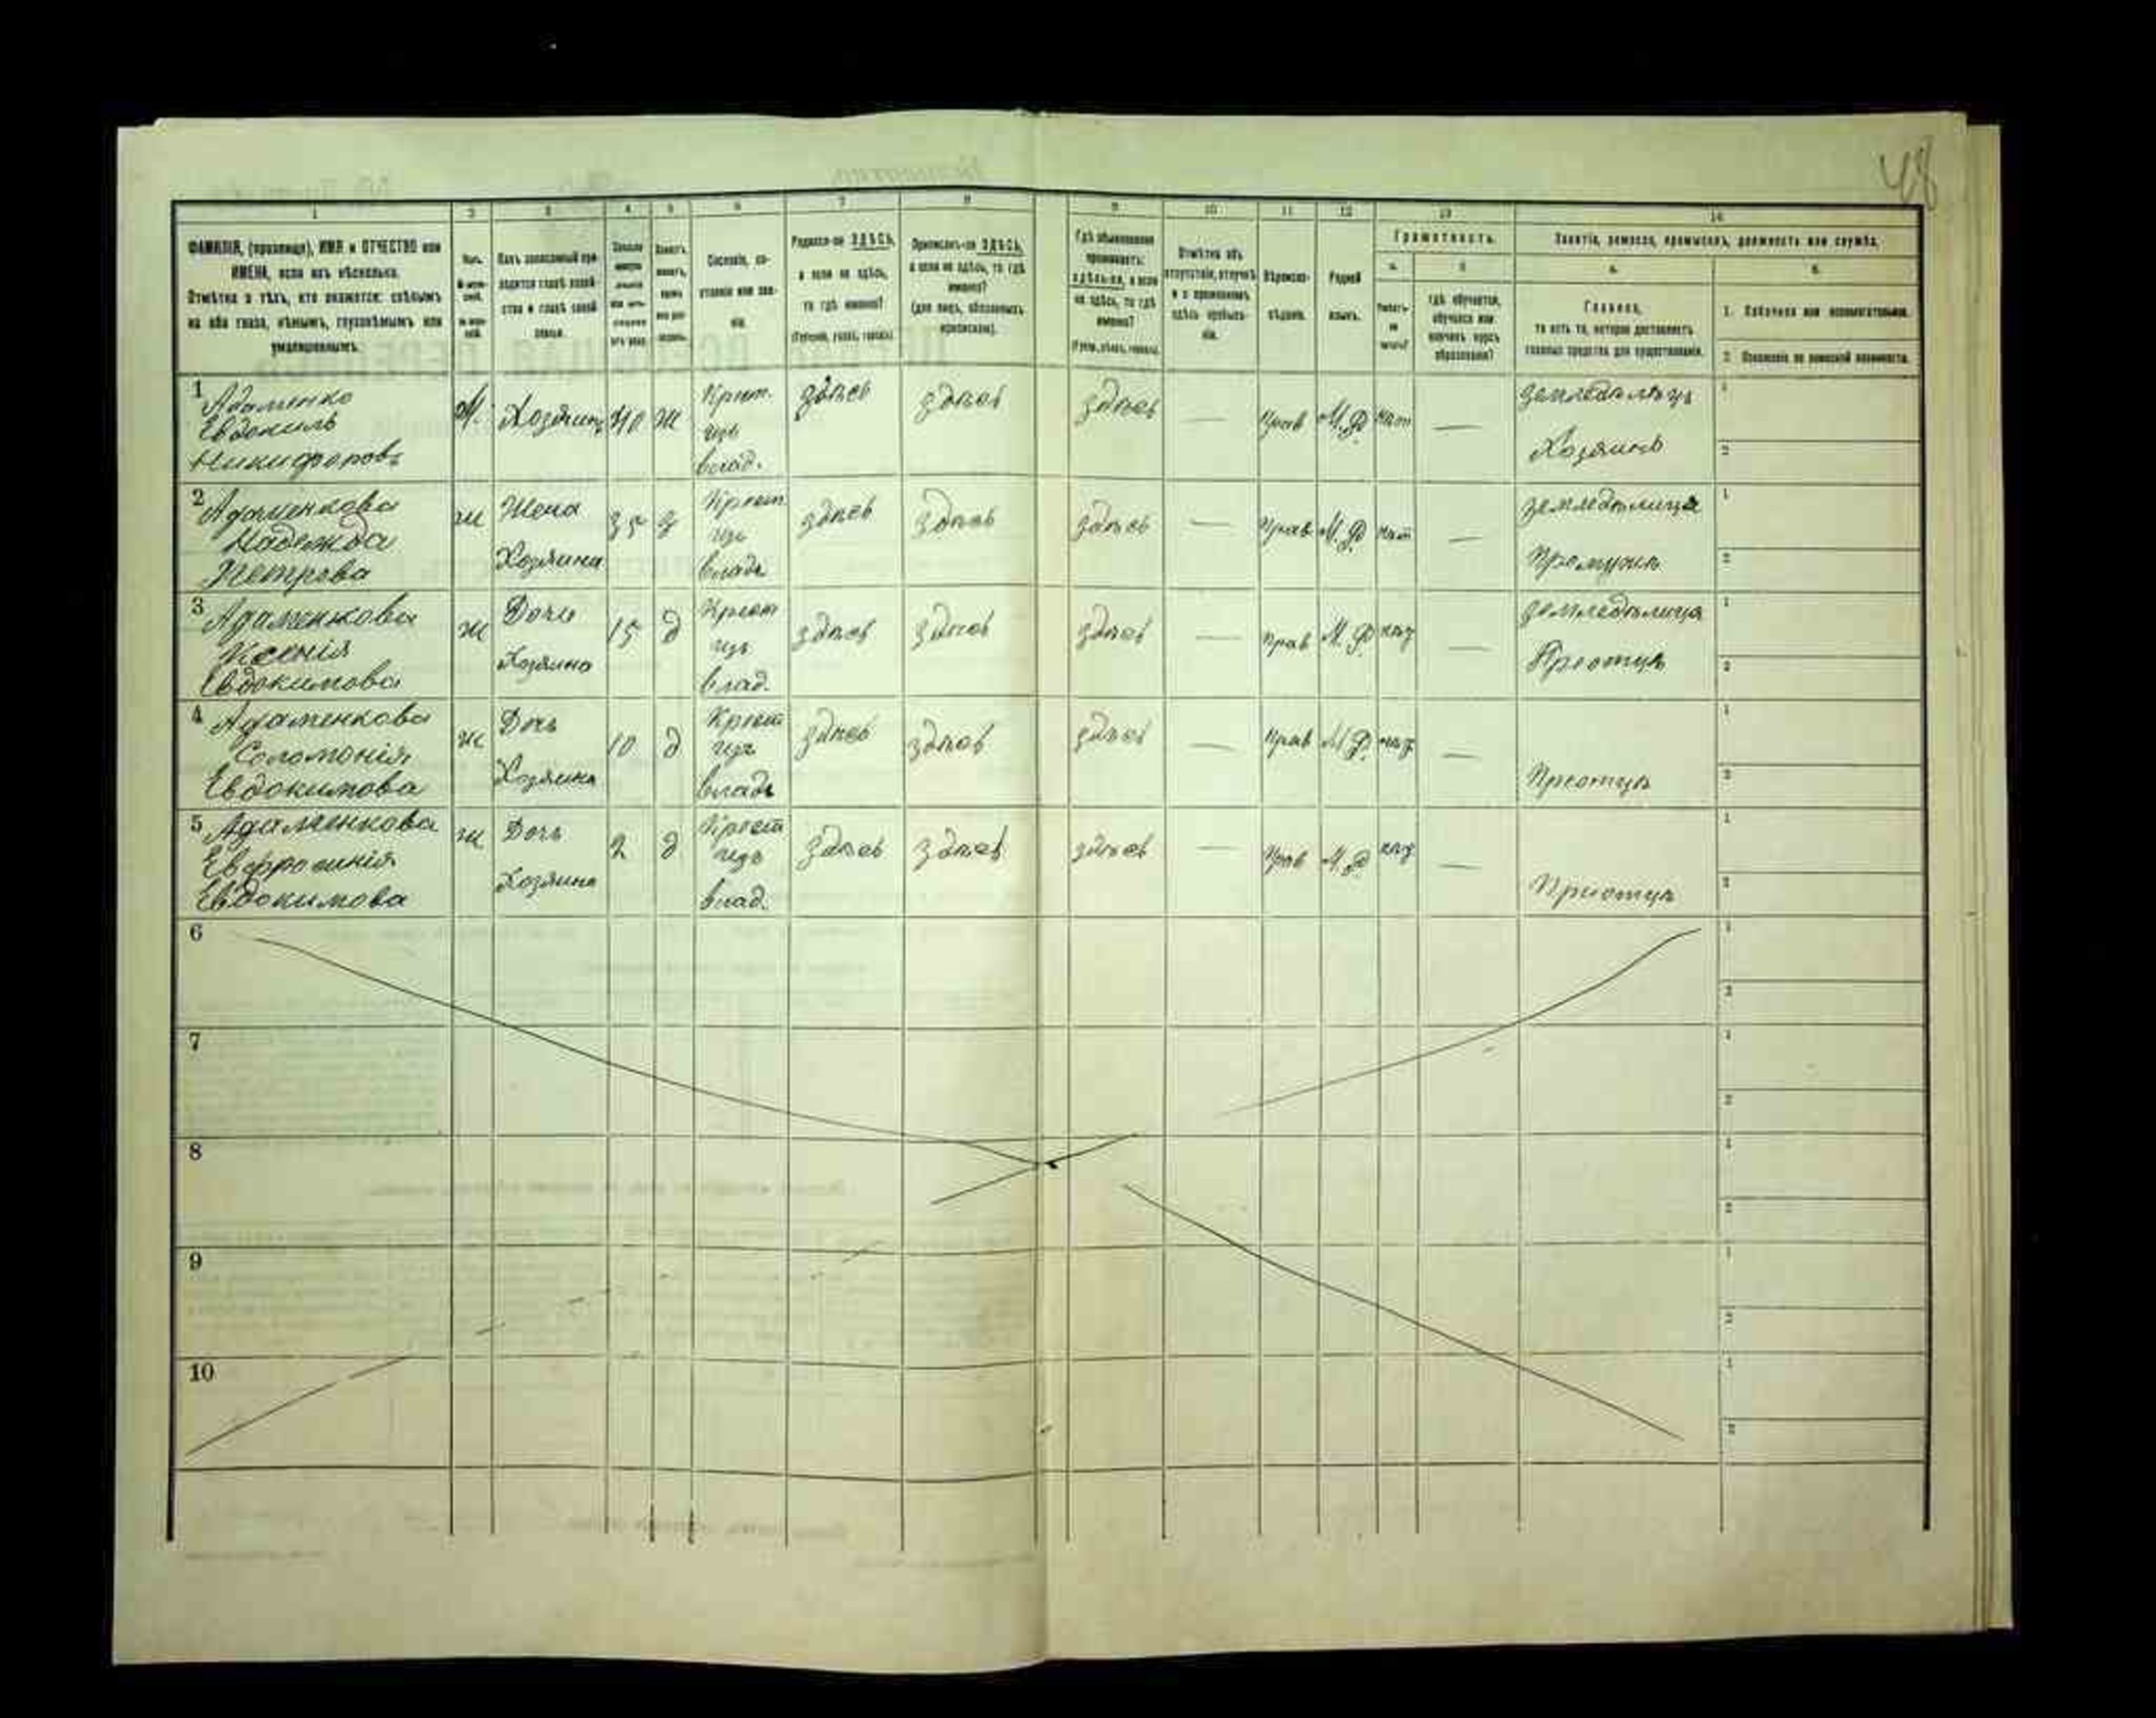 48
1 2 3 4 5 6 7 8 9 10 11 12 13 14
ФАМИЛІЯ, (прозвище), ИМЯ и ОТЧЕСТВО или
ИМЕНА, если ихъ нѣсколько.
Отмѣтка о тѣхъ, кто окажется: слѣпымъ
на оба глаза, нѣмымъ, глухонѣмымъ или
умалишеннымъ.
Полъ.
Какъ записанный при-
ходится главѣ хозяй-
ства и главѣ своей
семьи.
Сословіе, со-
стояніе или зва-
ніе.
Родился-ли ЗДѢСЬ,
а если не здѣсь,
то гдѣ именно?
(Губернія, уѣздъ, городъ).
Приписанъ-ли ЗДѢСЬ,
а если не здѣсь, то гдѣ
именно?
(для лицъ, обязанныхъ
припискою).
Гдѣ обыкновенно
проживаетъ:
здѣсь-ли, а если
не здѣсь, то гдѣ
именно?
Отмѣтка объ
отсутствіи, отлучкѣ
и о временномъ
здѣсь пребыва-
ніи.
Вѣроиспо-
вѣданіе.
Родной
языкъ.
Грамотность.
а. б.
Умѣетъ-
ли
читать?
гдѣ обучается,
обучался или
кончилъ курсъ
образованія?
Занятіе, ремесло, промыселъ, должность или служба.
а. б.
Главное,
то есть то, которое доставляетъ
главныя средства для существованія.
1. Побочное или вспомогательное.
2. Положеніе по воинской повинности.
1 Адаменко
Евдокимъ
Никифоровъ
М. Хозяинъ 40 ж
Крест.
изъ
влад.
здѣсь здѣсь здѣсь — Прав М.Р. нѣт —
земледѣлецъ
Хозяинъ
1
2
2 Адаменкова
Надежда
Петрова
ж Жена
Хозяина
35 з
Крест
изъ
владѣ
здѣсь здѣсь здѣсь — Прав М.Р. нѣт —
земледѣлица
При мужѣ
1
2
3 Адаменкова
Ксенія
Евдокимова
ж Дочь
Хозяина
15 д
Крест
изъ
влад.
здѣсь здѣсь здѣсь — Прав М.Р. нѣт —
земледѣлица
При отцѣ
1
2
4 Адаменкова
Соломонія
Евдокимова
ж Дочь
Хозяина
10 д
Крест
изъ
владѣ
здѣсь здѣсь здѣсь — Прав М.Р. нѣт —
При отцѣ
1
2
5 Адаменкова
Евфросинія
Евдокимова
ж Дочь
Хозяина
2 д
Крест
изъ
влад.
здѣсь здѣсь здѣсь — Прав М.Р. нѣт —
При отцѣ
1
2
6
1
2
7
1
2
8
1
2
9
1
2
10
1
2